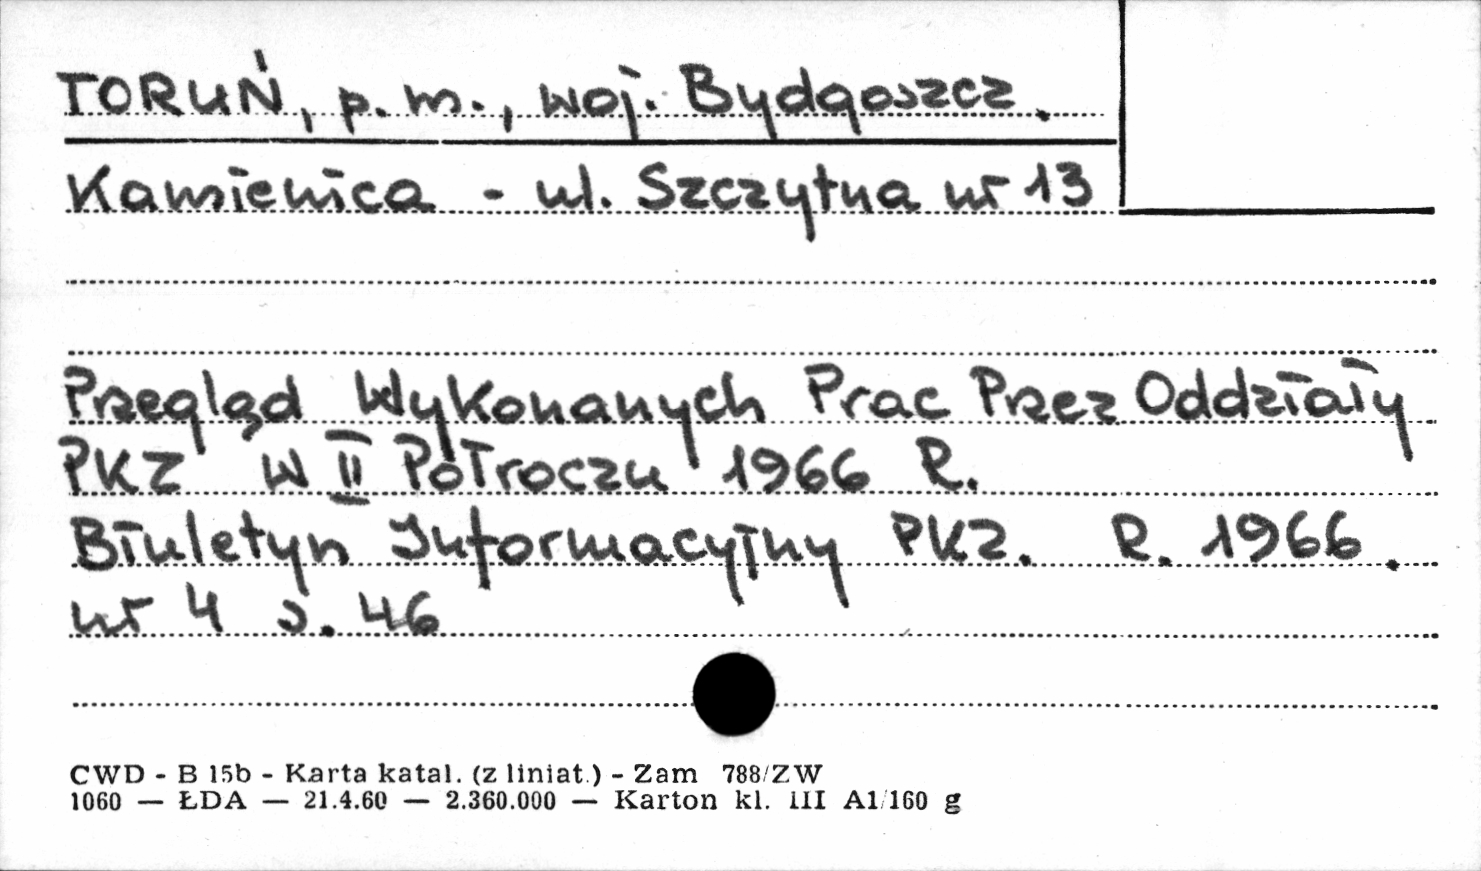 TORUŃ, p. m., woj. Bydgoszcz.
Kamienica - ul. Szczytna nr 13
Przegląd Wykonanych Prac Przez Oddziały
PKZ w II Półroczu 1966 R.
Biuletyn Informacyjny PKZ. R. 1966.
nr 4 s. 46
CWD - B 15b - Karta katal. (z liniat.) - Zam 788/ZW
1060 — ŁDA — 21.4.60 — 2.360.000 — Karton kl. III A1/160 g